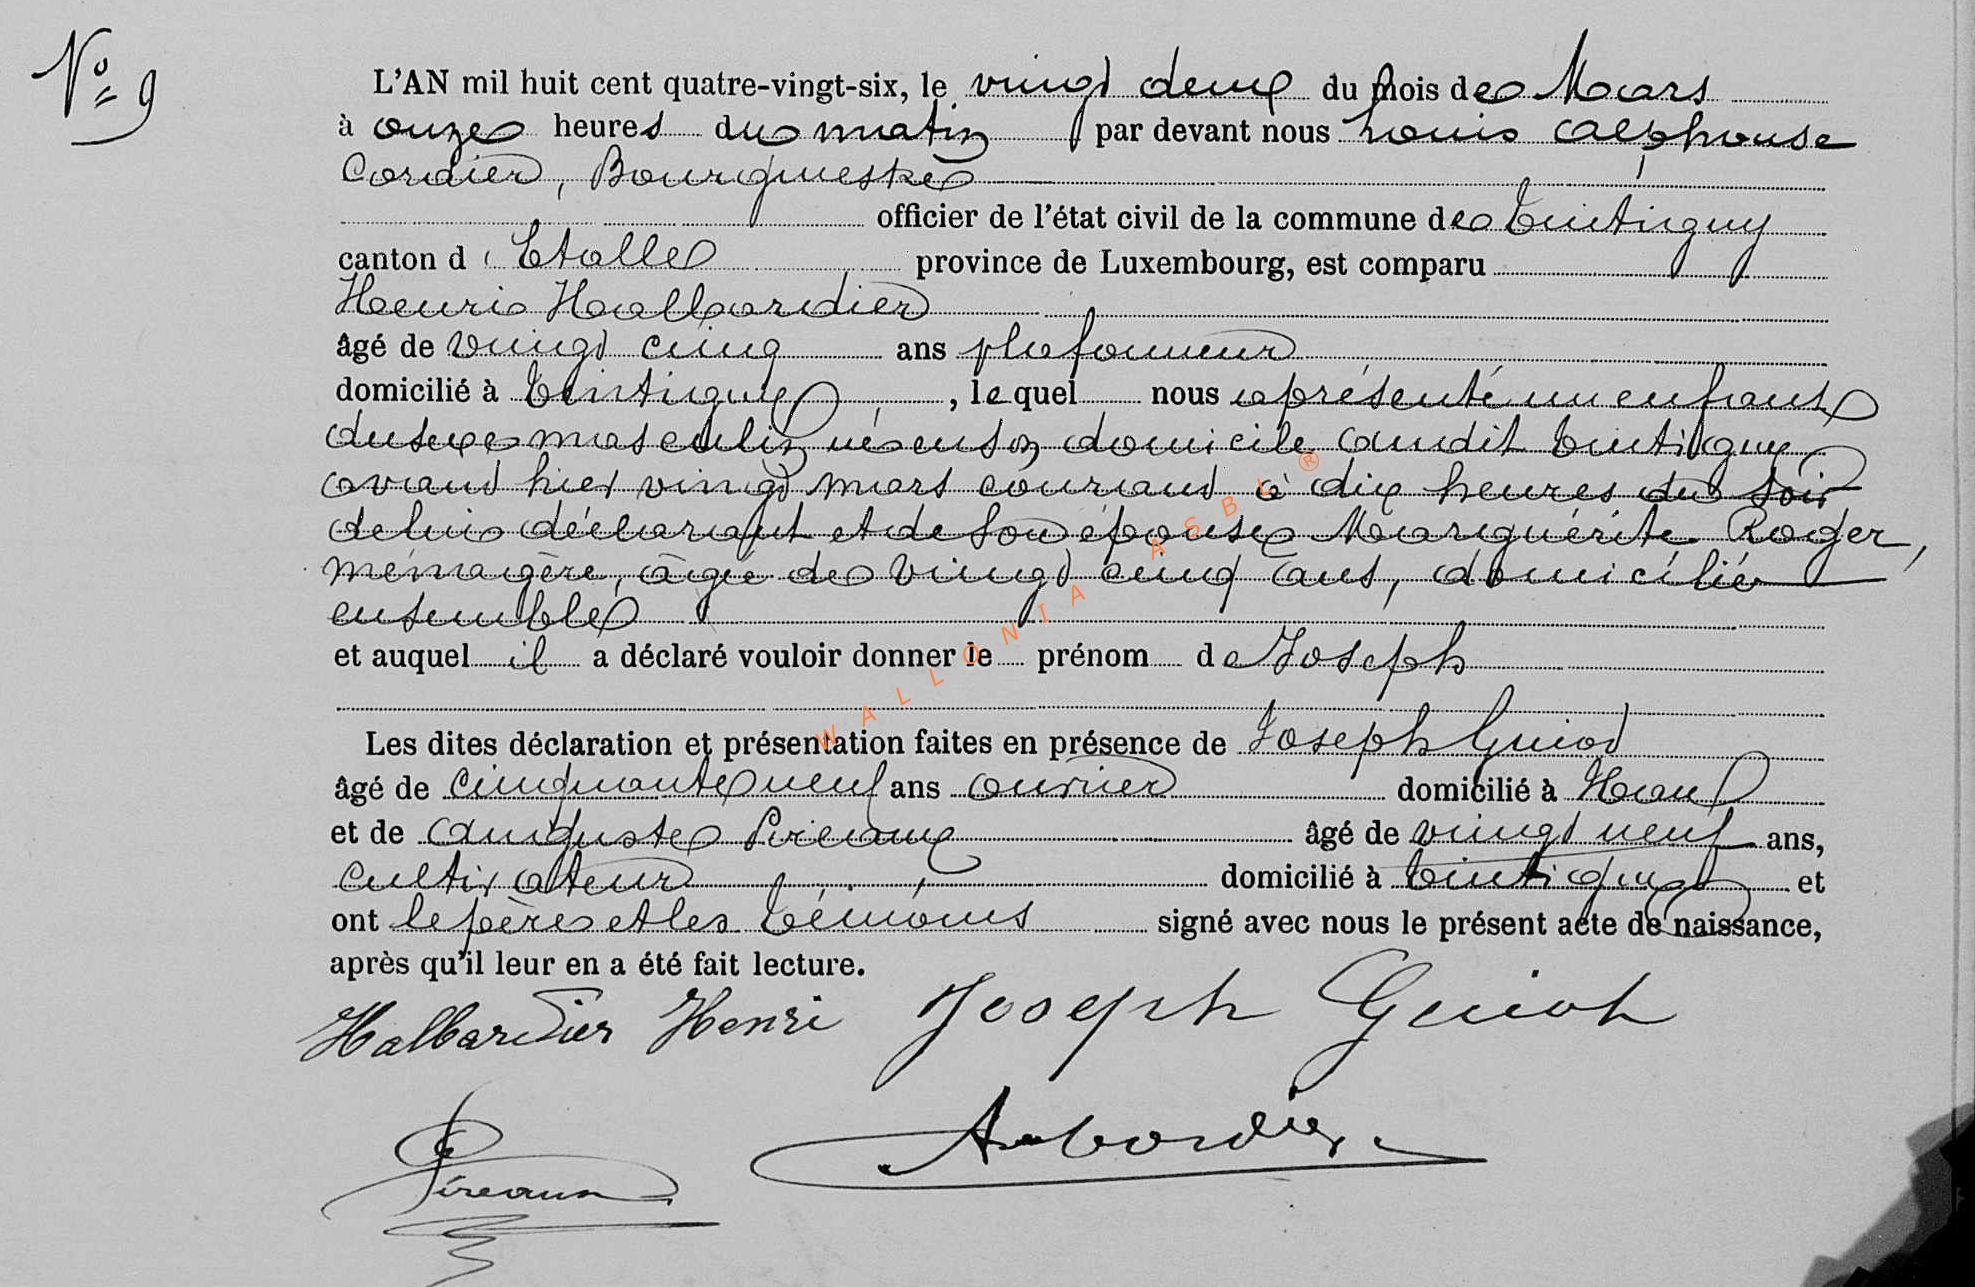 N° 9
L'AN mil huit cent quatre-vingt-six, le vingt deux du mois de Mars
à onze heures du matin par devant nous Louis Alphonse
Cordier, Bourgmestre
officier de l'état civil de la commune de Tintigny
canton d'Etalle province de Luxembourg, est comparu
Henri Halbardier
âgé de vingt cinq ans plafonneur
domicilié à Tintigny, lequel nous a présenté un enfant
du sexe masculin né en son domicile audit Tintigny
avant hier vingt mars courant à dix heures du soir
de lui déclarant et de son épouse Marguérite Roger,
ménagère, âgée de vingt cinq ans, domiciliés
ensemble
et auquel il a déclaré vouloir donner le prénom de Joseph
Les dites déclaration et présentation faites en présence de Joseph Guiot
âgé de cinquante neuf ans ouvrier domicilié à Han
et de Auguste Pireaux âgé de vingt neuf ans,
cultivateur domicilié à Tintigny et
ont le père et les témoins signé avec nous le présent acte de naissance,
après qu'il leur en a été fait lecture.
Halbardier Henri Joseph Guiot
Pireaux A. Cordier
WALLONIA ASBL ®